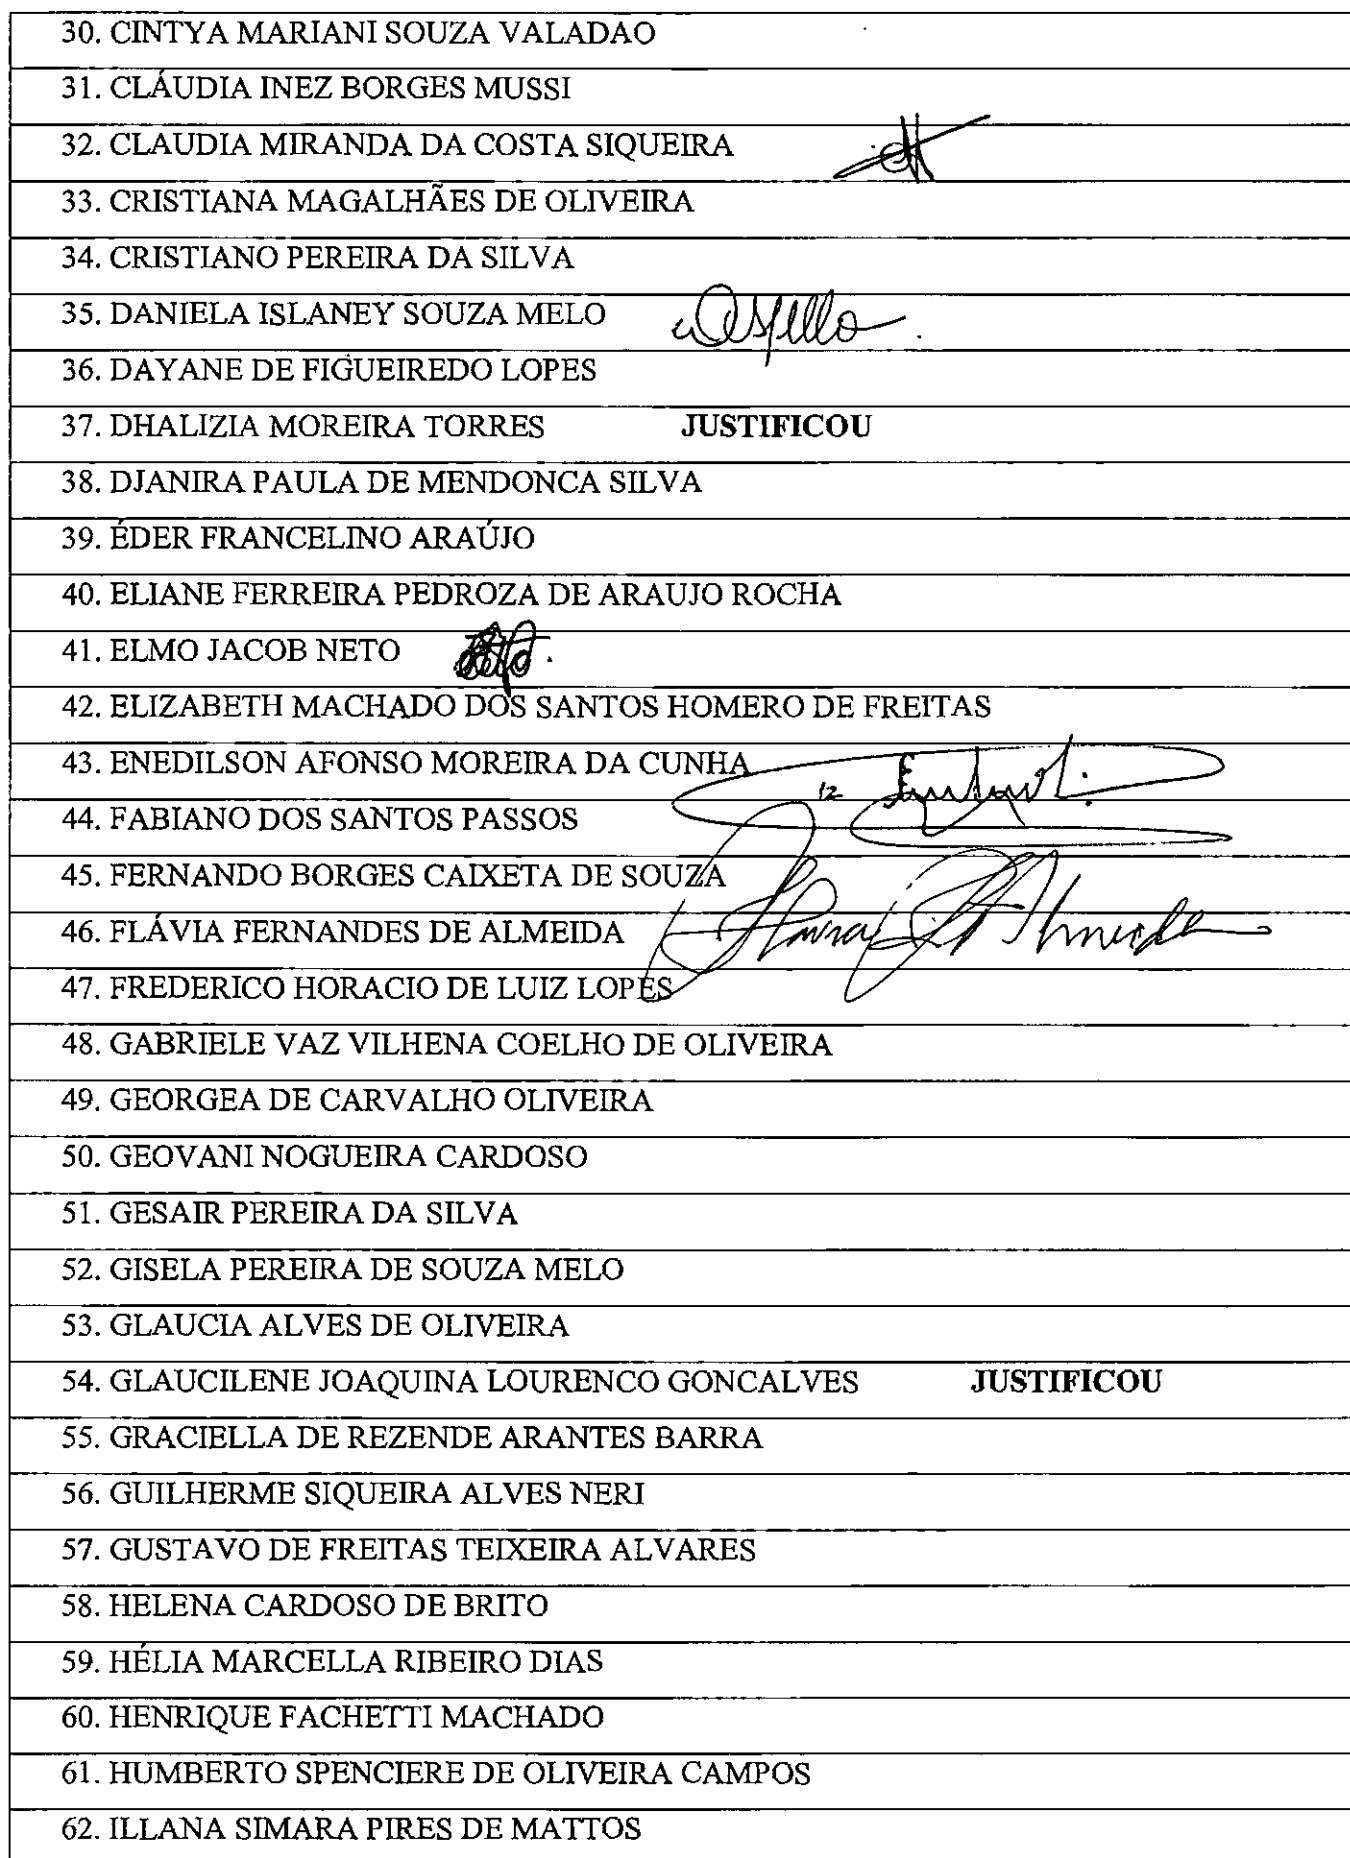 30. CINTYA MARIANI SOUZA VALADAO
31. CLÁUDIA INEZ BORGES MUSSI
32. CLAUDIA MIRANDA DA COSTA SIQUEIRA
33. CRISTIANA MAGALHÃES DE OLIVEIRA
34. CRISTIANO PEREIRA DA SILVA
35. DANIELA ISLANEY SOUZA MELO
36. DAYANE DE FIGUEIREDO LOPES
37. DHALIZIA MOREIRA TORRES JUSTIFICOU
38. DJANIRA PAULA DE MENDONCA SILVA
39. ÉDER FRANCELINO ARAÚJO
40. ELIANE FERREIRA PEDROZA DE ARAUJO ROCHA
41. ELMO JACOB NETO
42. ELIZABETH MACHADO DOS SANTOS HOMERO DE FREITAS
43. ENEDILSON AFONSO MOREIRA DA CUNHA
44. FABIANO DOS SANTOS PASSOS
45. FERNANDO BORGES CAIXETA DE SOUZA
46. FLÁVIA FERNANDES DE ALMEIDA
47. FREDERICO HORACIO DE LUIZ LOPES
48. GABRIELE VAZ VILHENA COELHO DE OLIVEIRA
49. GEORGEA DE CARVALHO OLIVEIRA
50. GEOVANI NOGUEIRA CARDOSO
51. GESAIR PEREIRA DA SILVA
52. GISELA PEREIRA DE SOUZA MELO
53. GLAUCIA ALVES DE OLIVEIRA
54. GLAUCILENE JOAQUINA LOURENCO GONCALVES JUSTIFICOU
55. GRACIELLA DE REZENDE ARANTES BARRA
56. GUILHERME SIQUEIRA ALVES NERI
57. GUSTAVO DE FREITAS TEIXEIRA ALVARES
58. HELENA CARDOSO DE BRITO
59. HÉLIA MARCELLA RIBEIRO DIAS
60. HENRIQUE FACHETTI MACHADO
61. HUMBERTO SPENCIERE DE OLIVEIRA CAMPOS
62. ILLANA SIMARA PIRES DE MATTOS